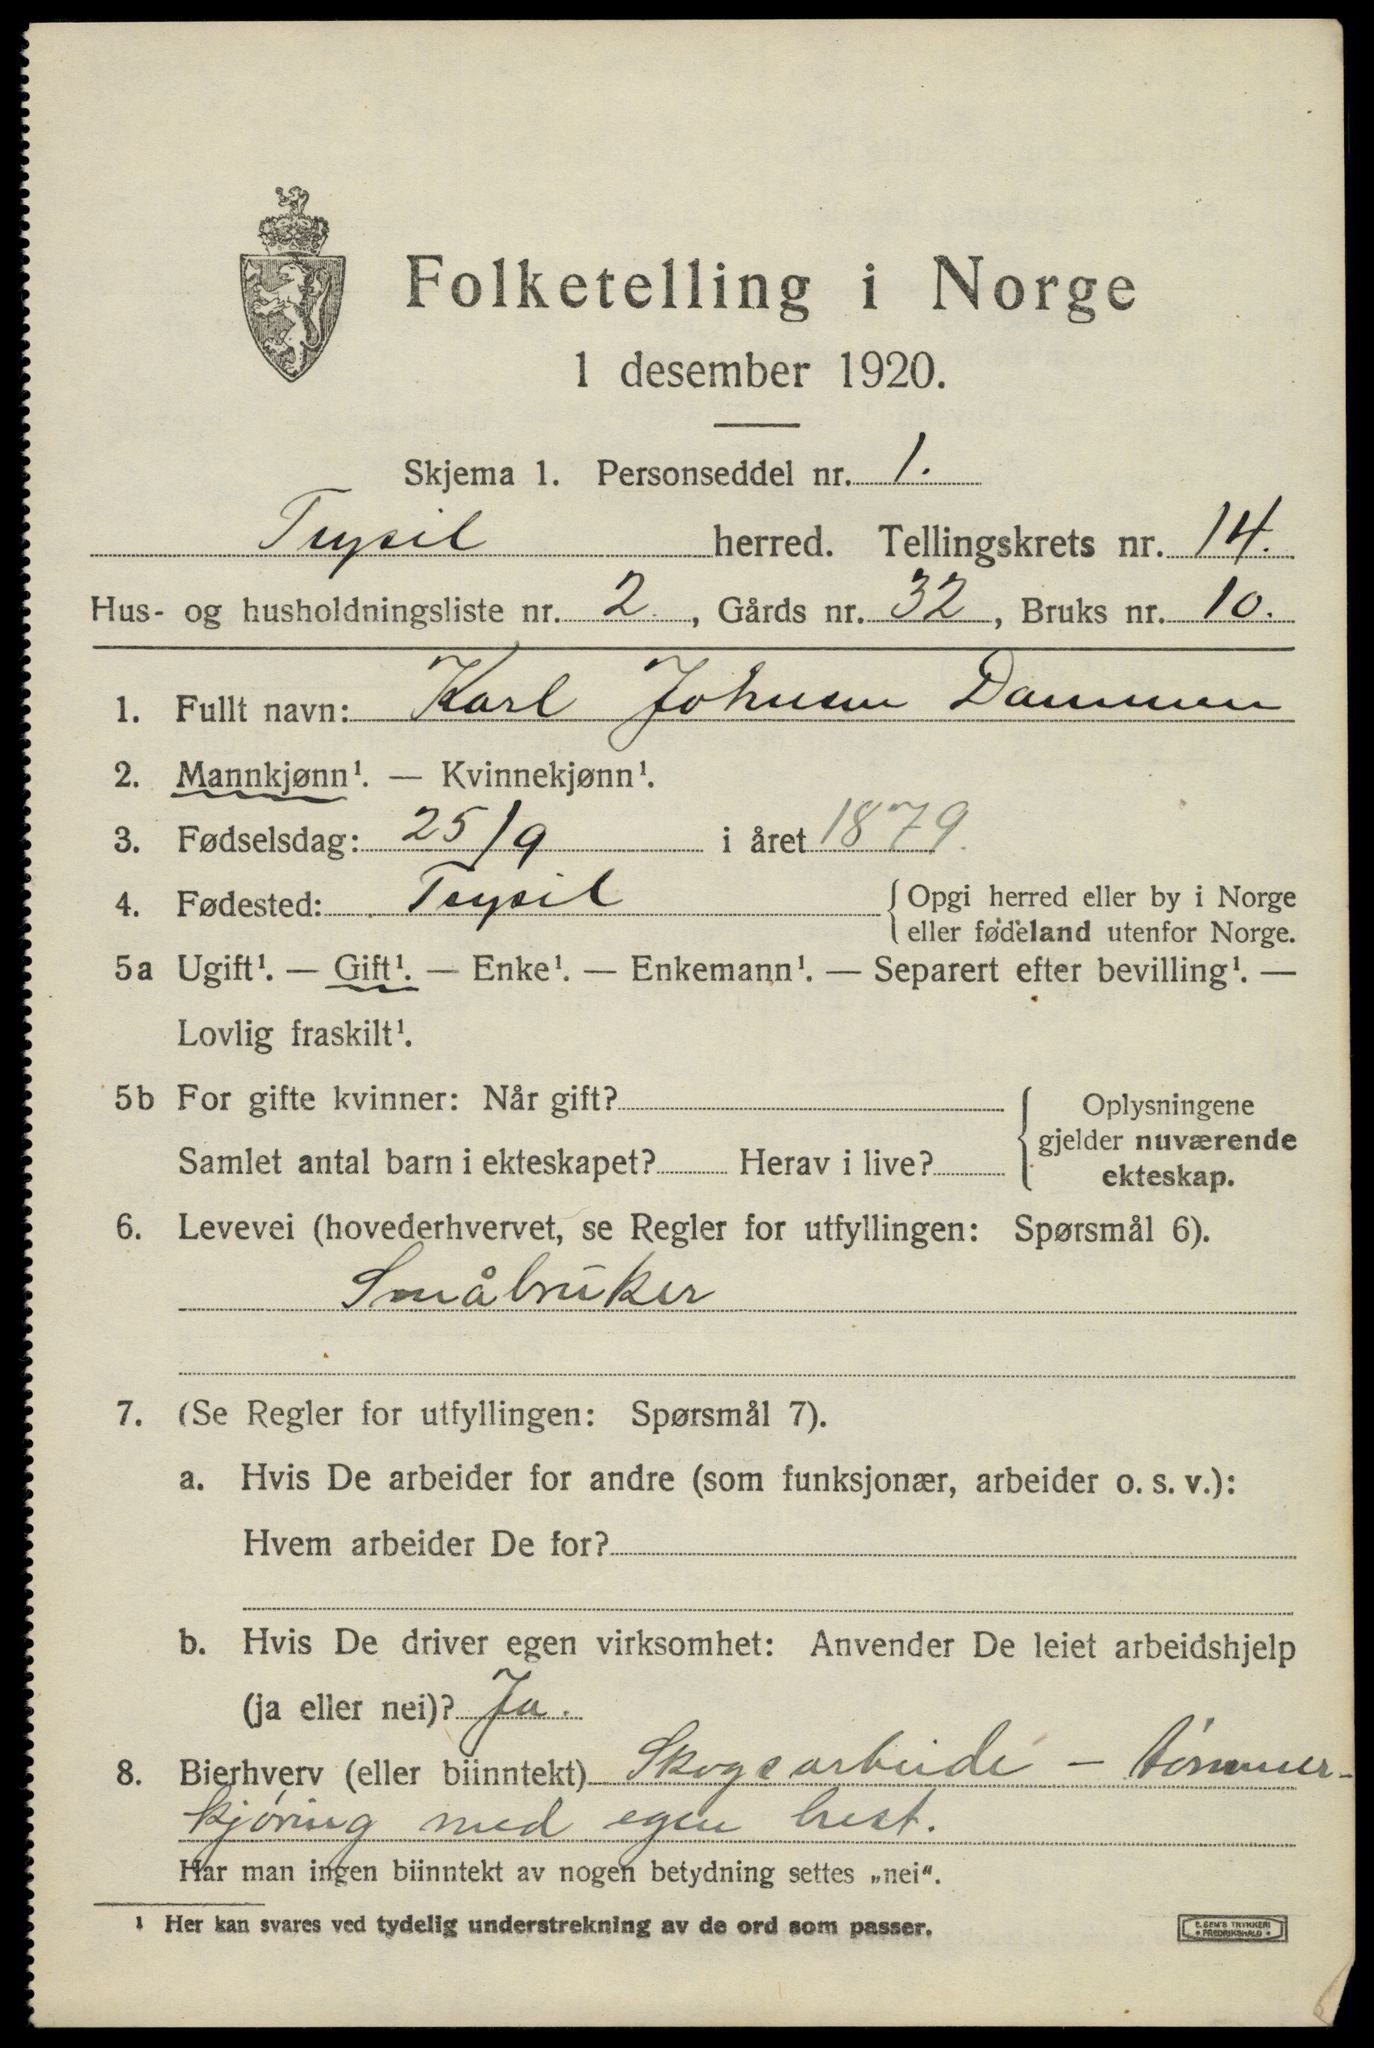 Folketelling i Norge
1 desember 1920.
Skjema 1. Personseddel nr. 1.
Trysil herred. Tellingskrets nr. 14.
Hus- og husholdningsliste nr. 2, Gårds nr. 32, Bruks nr. 10.
1. Fullt navn: Karl Johnsen Dammen
2. Mannkjønn¹. — Kvinnekjønn¹.
3. Fødselsdag: 25/9 i året 1879.
4. Fødested: Trysil { Opgi herred eller by i Norge
eller fødeland utenfor Norge.
5a Ugift¹. — Gift¹. — Enke¹. — Enkemann¹. — Separert efter bevilling¹. —
Lovlig fraskilt¹.
5b For gifte kvinner: Når gift?
Samlet antal barn i ekteskapet? Herav i live?
{ Oplysningene
gjelder nuværende
ekteskap.
6. Levevei (hovederhvervet, se Regler for utfyllingen: Spørsmål 6).
Småbruker
7. (Se Regler for utfyllingen: Spørsmål 7).
a. Hvis De arbeider for andre (som funksjonær, arbeider o. s. v.):
Hvem arbeider De for?
b. Hvis De driver egen virksomhet: Anvender De leiet arbeidshjelp
(ja eller nei)? Ja.
8. Bierhverv (eller biinntekt) Skogsarbeide – tømmer-
kjøring med egen hest.
Har man ingen biinntekt av nogen betydning settes „nei“.
1 Her kan svares ved tydelig understrekning av de ord som passer.
E. SEM'S TRYKKERI
* FREDRIKSHALD *